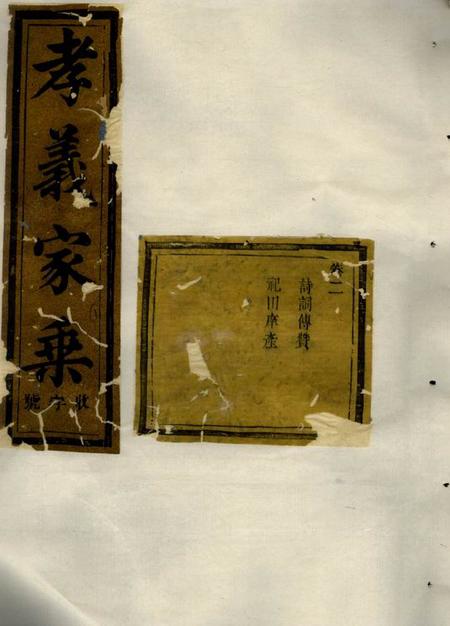 孝義家乗
收字號
卷二
詩詞傳贊
祀田產